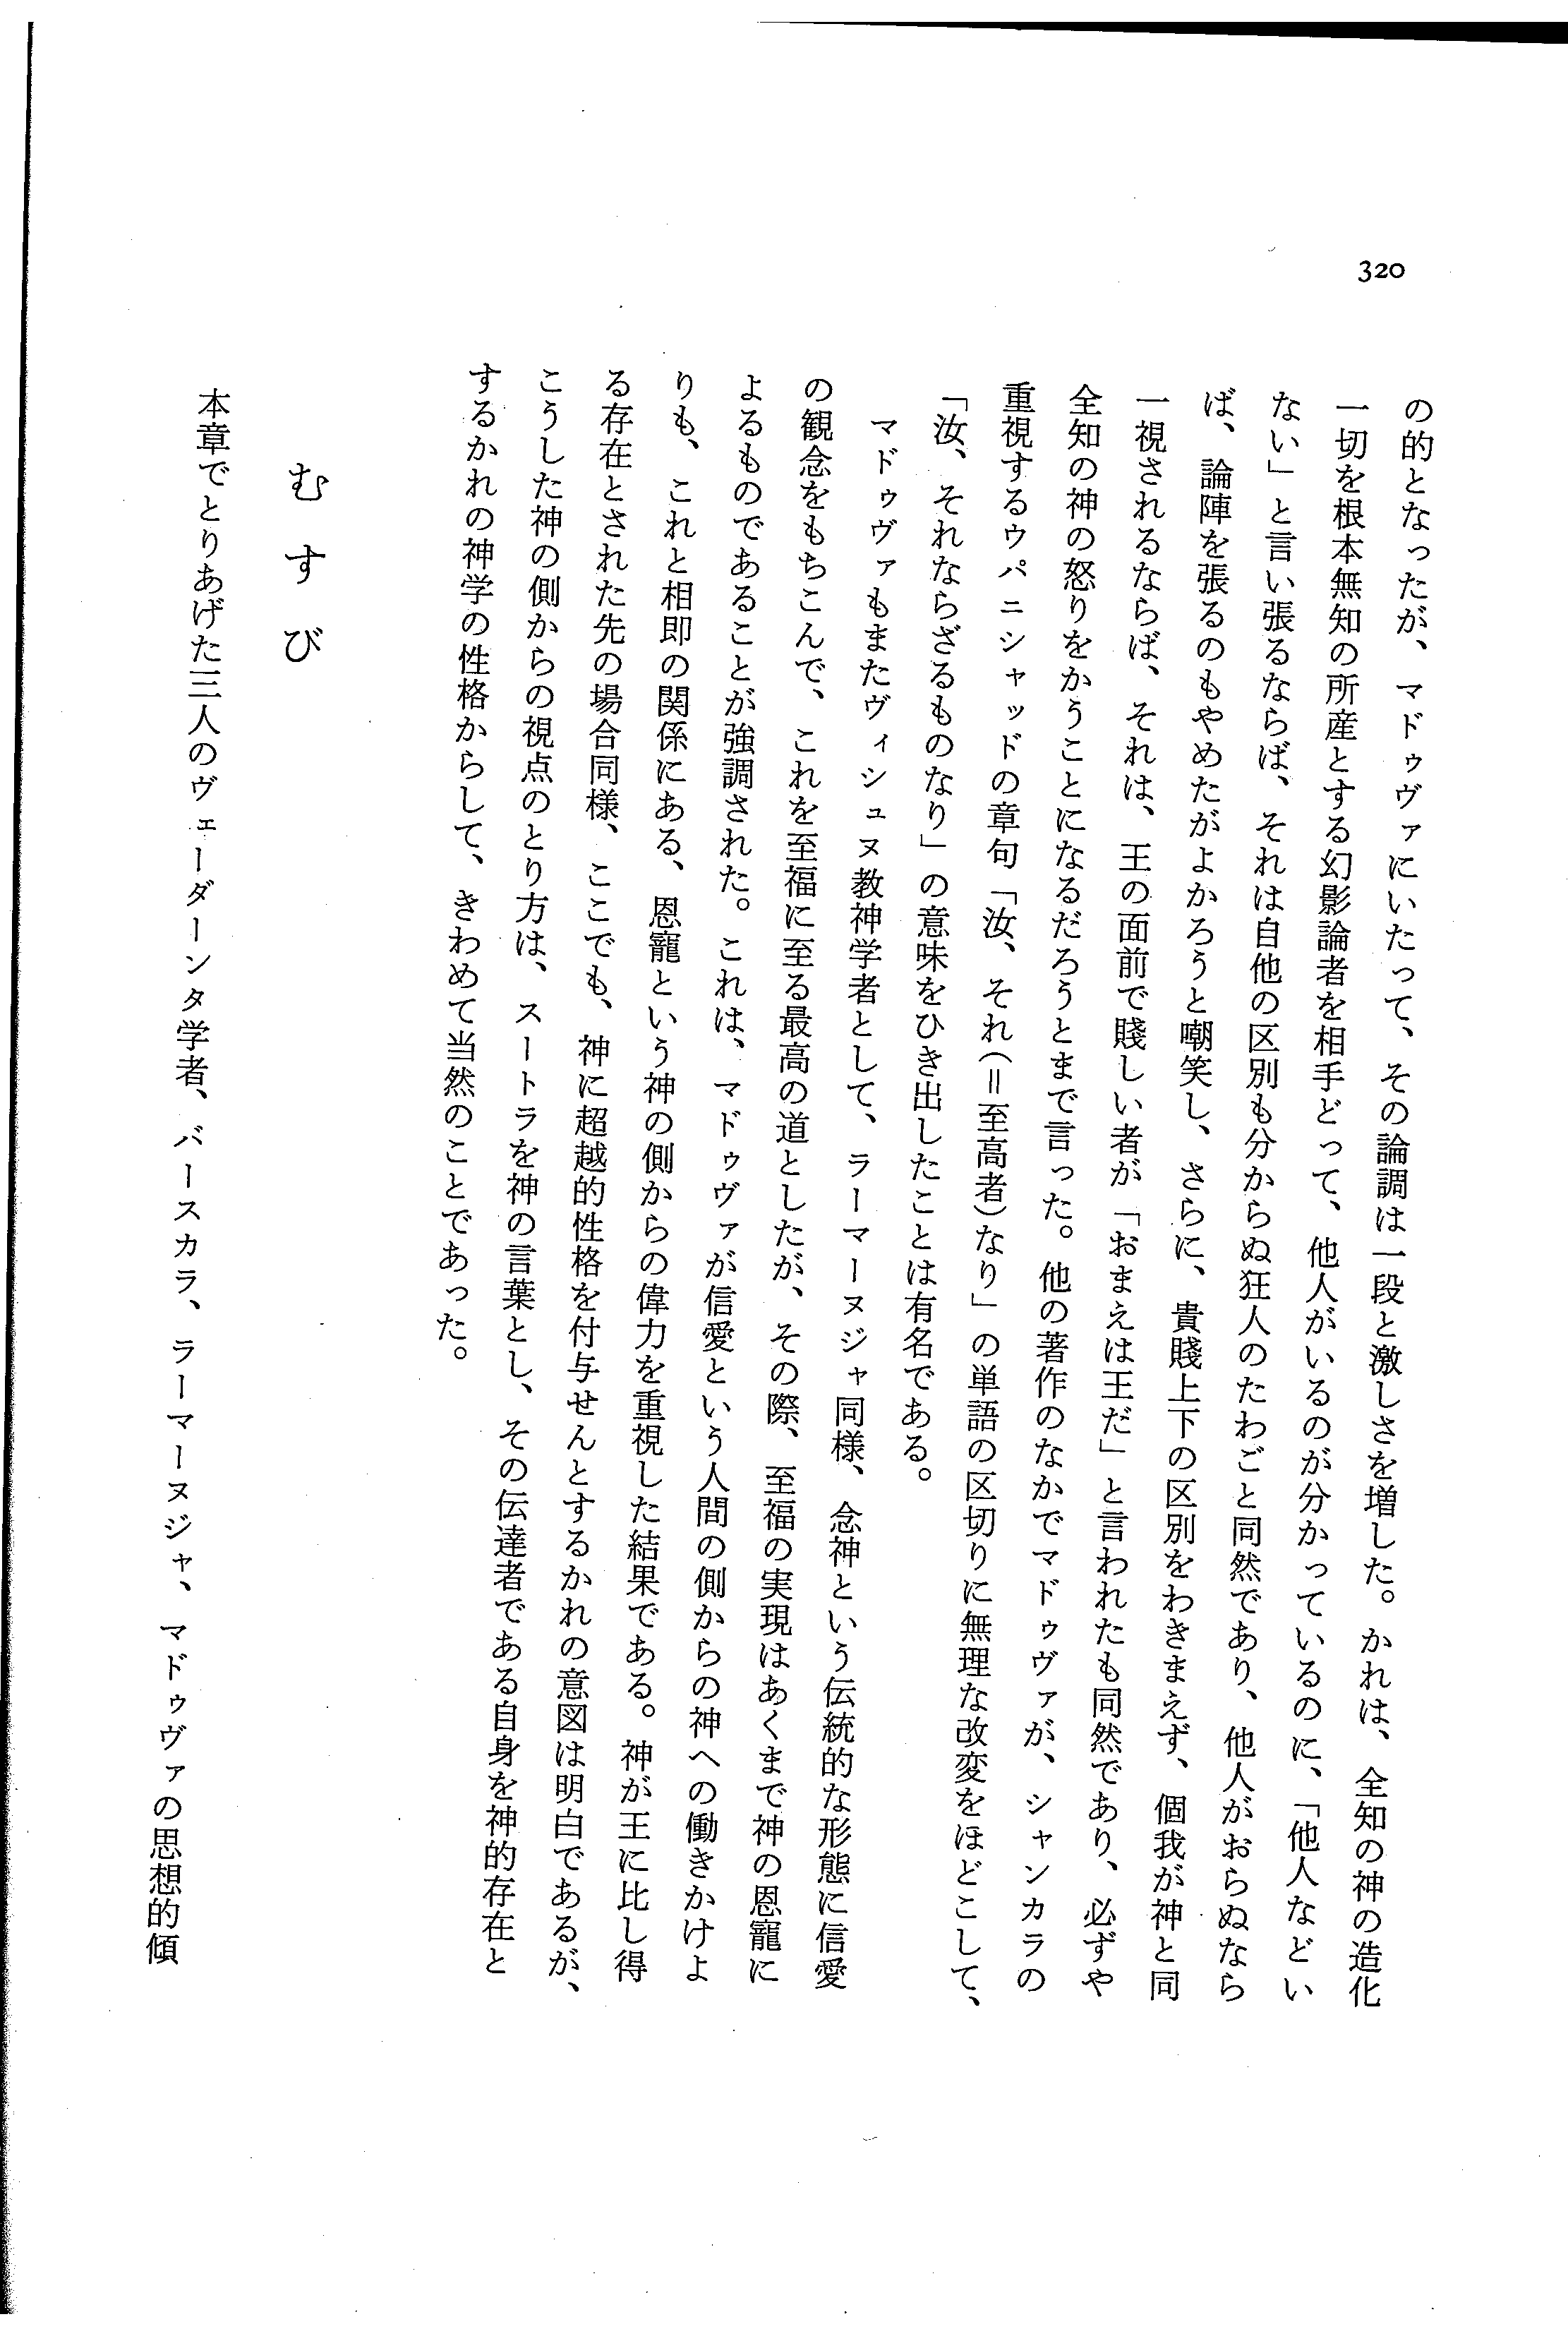 320
の的となったが、マドゥヴァにいたって、その論調は一段と激しさを増した。かれは、全知の神の造化
一切を根本無知の所産とする幻影論者を相手どって、他人がいるのが分かっているのに、「他人などい
ない」と言い張るならば、それは自他の区別も分からぬ狂人のたわごと同然であり、他人がおらぬなら
ば、論陣を張るのもやめたがよかろうと嘲笑し、さらに、貴賤上下の区別をわきまえず、個我が神と同
一視されるならば、それは、王の面前で賤しい者が「おまえは王だ」と言われたも同然であり、必ずや
全知の神の怒りをかうことになるだろうとまで言った。他の著作のなかでマドゥヴァが、シャンカラの
重視するウパニシャッドの章句「汝、それ(=至高者)なり」の単語の区切りに無理な改変をほどこして、
「汝、それならざるものなり」の意味をひき出したことは有名である。
マドゥヴァもまたヴィシュヌ教神学者として、ラーマーヌジャ同様、念神という伝統的な形態に信愛
の観念をもちこんで、これを至福に至る最高の道としたが、その際、至福の実現はあくまで神の恩寵に
よるものであることが強調された。これは、マドゥヴァが信愛という人間の側からの神への働きかけよ
りも、これと相即の関係にある、恩寵という神の側からの偉力を重視した結果である。神が王に比し得
る存在とされた先の場合同様、ここでも、神に超越的性格を付与せんとするかれの意図は明白であるが、
こうした神の側からの視点のとり方は、スートラを神の言葉とし、その伝達者である自身を神的存在と
するかれの神学の性格からして、きわめて当然のことであった。
むすび
本章でとりあげた三人のヴェーダーンタ学者、バースカラ、ラーマーヌジャ、マドゥヴァの思想的傾